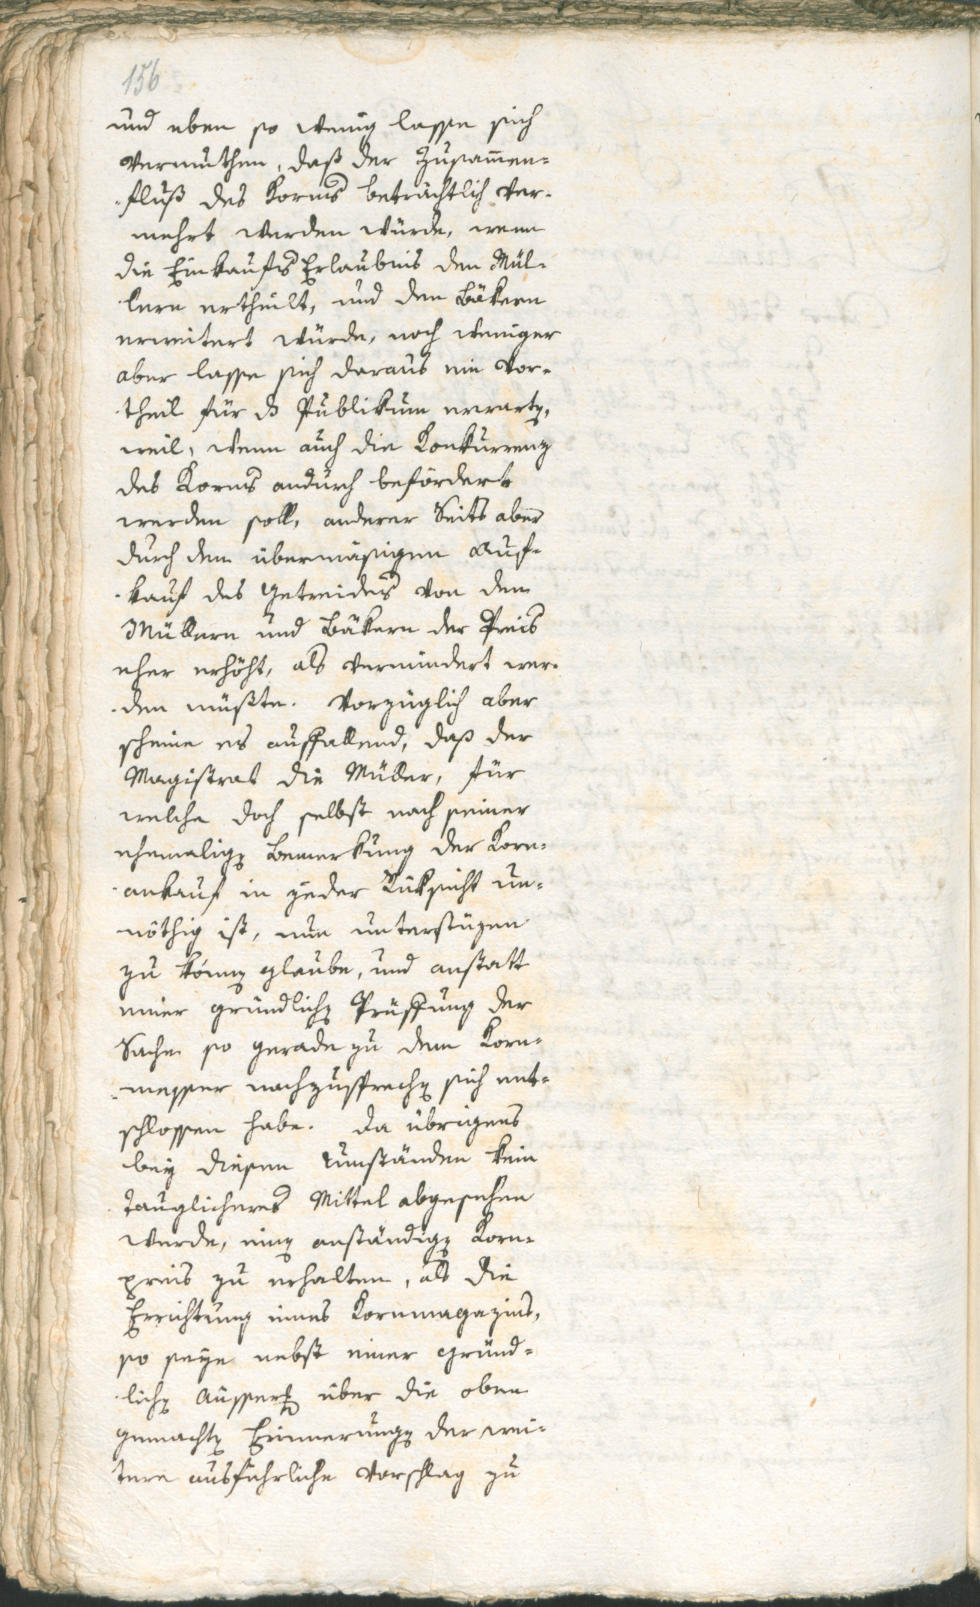 156
und eben so wenig lasse sich
vermuthen, daß der Zusam̄en=
fluß des Korns beträchtlich ver=
mehrt werden würde, wenn
die Einkaufs Erlaubnis den Mül=
lern ertheilt, und den Bäkern
erweitert würde, noch weniger
aber lasse sich daraus ein Vor=
theil für das Publikum erwarten,
weil, wenn auch die Konkurrenz
des Korns andurch befördert
werden soll, anderer Seits aber
durch den übermäsigen Auf=
kauf des Getreides von den
Müllern und Bäkern der Preis
eher erhöht, als vermindert wer=
den müßte. Vorzüglich aber
scheine es auffallend, daß der
Magistrat die Müller, für
welche doch selbst nach seiner
ehemaligen Bemerkung der Korn=
ankauf in jeder Rüksicht un=
nöthig ist, nun unterstüzen
zu können glaube, und anstatt
einer gründlichen Prüffung der
Sache so gerade zu dem Korn=
messer nachzusprechen sich ent=
schlossen habe. Da übrigens
bey diesen Umständen kein
tauglicheres Mittel abgesehen
werde, einen anständigen Korn=
preis zu erhalten, als die
Errichtung eines Kornmagazins,
so seye nebst einer gründ=
lichen Äusserung über die oben
gemachten Erinnerungen der wei=
tere ausführliche Vorschlag zu